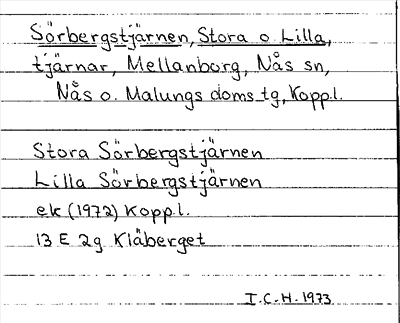 Sörbergstjärnen, Stora o. Lilla,
tjärnar, Mellanborg, Nås sn,
Nås o. Malungs doms.tg, Koppl.
Stora Sörbergstjärnen
Lilla Sörbergstjärnen
ek (1972) Koppl.
13 E 2g Klåberget
I.C.H. 1973